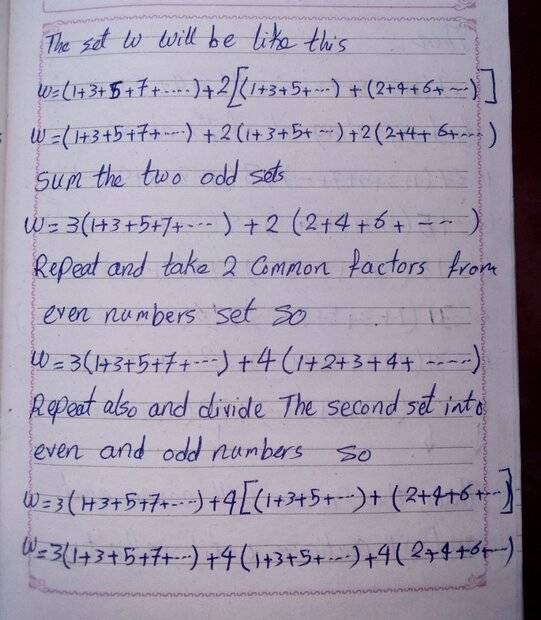 The set W will be like this
W=(1+3+5+7+.....)+2[(1+3+5+...)+(2+4+6+...)]
W=(1+3+5+7+...)+2(1+3+5+...)+2(2+4+6+...)
Sum the two odd sets
W=3(1+3+5+7+...)+2(2+4+6+...)
Repeat and take 2 Common factors from
even numbers set so
W=3(1+3+5+7+...)+4(1+2+3+4+.....)
Repeat also and divide The second set into
even and odd numbers so
W=3(1+3+5+7+...)+4[(1+3+5+...)+(2+4+6+...)]
W=3(1+3+5+7+...)+4(1+3+5+...)+4(2+4+6+...)